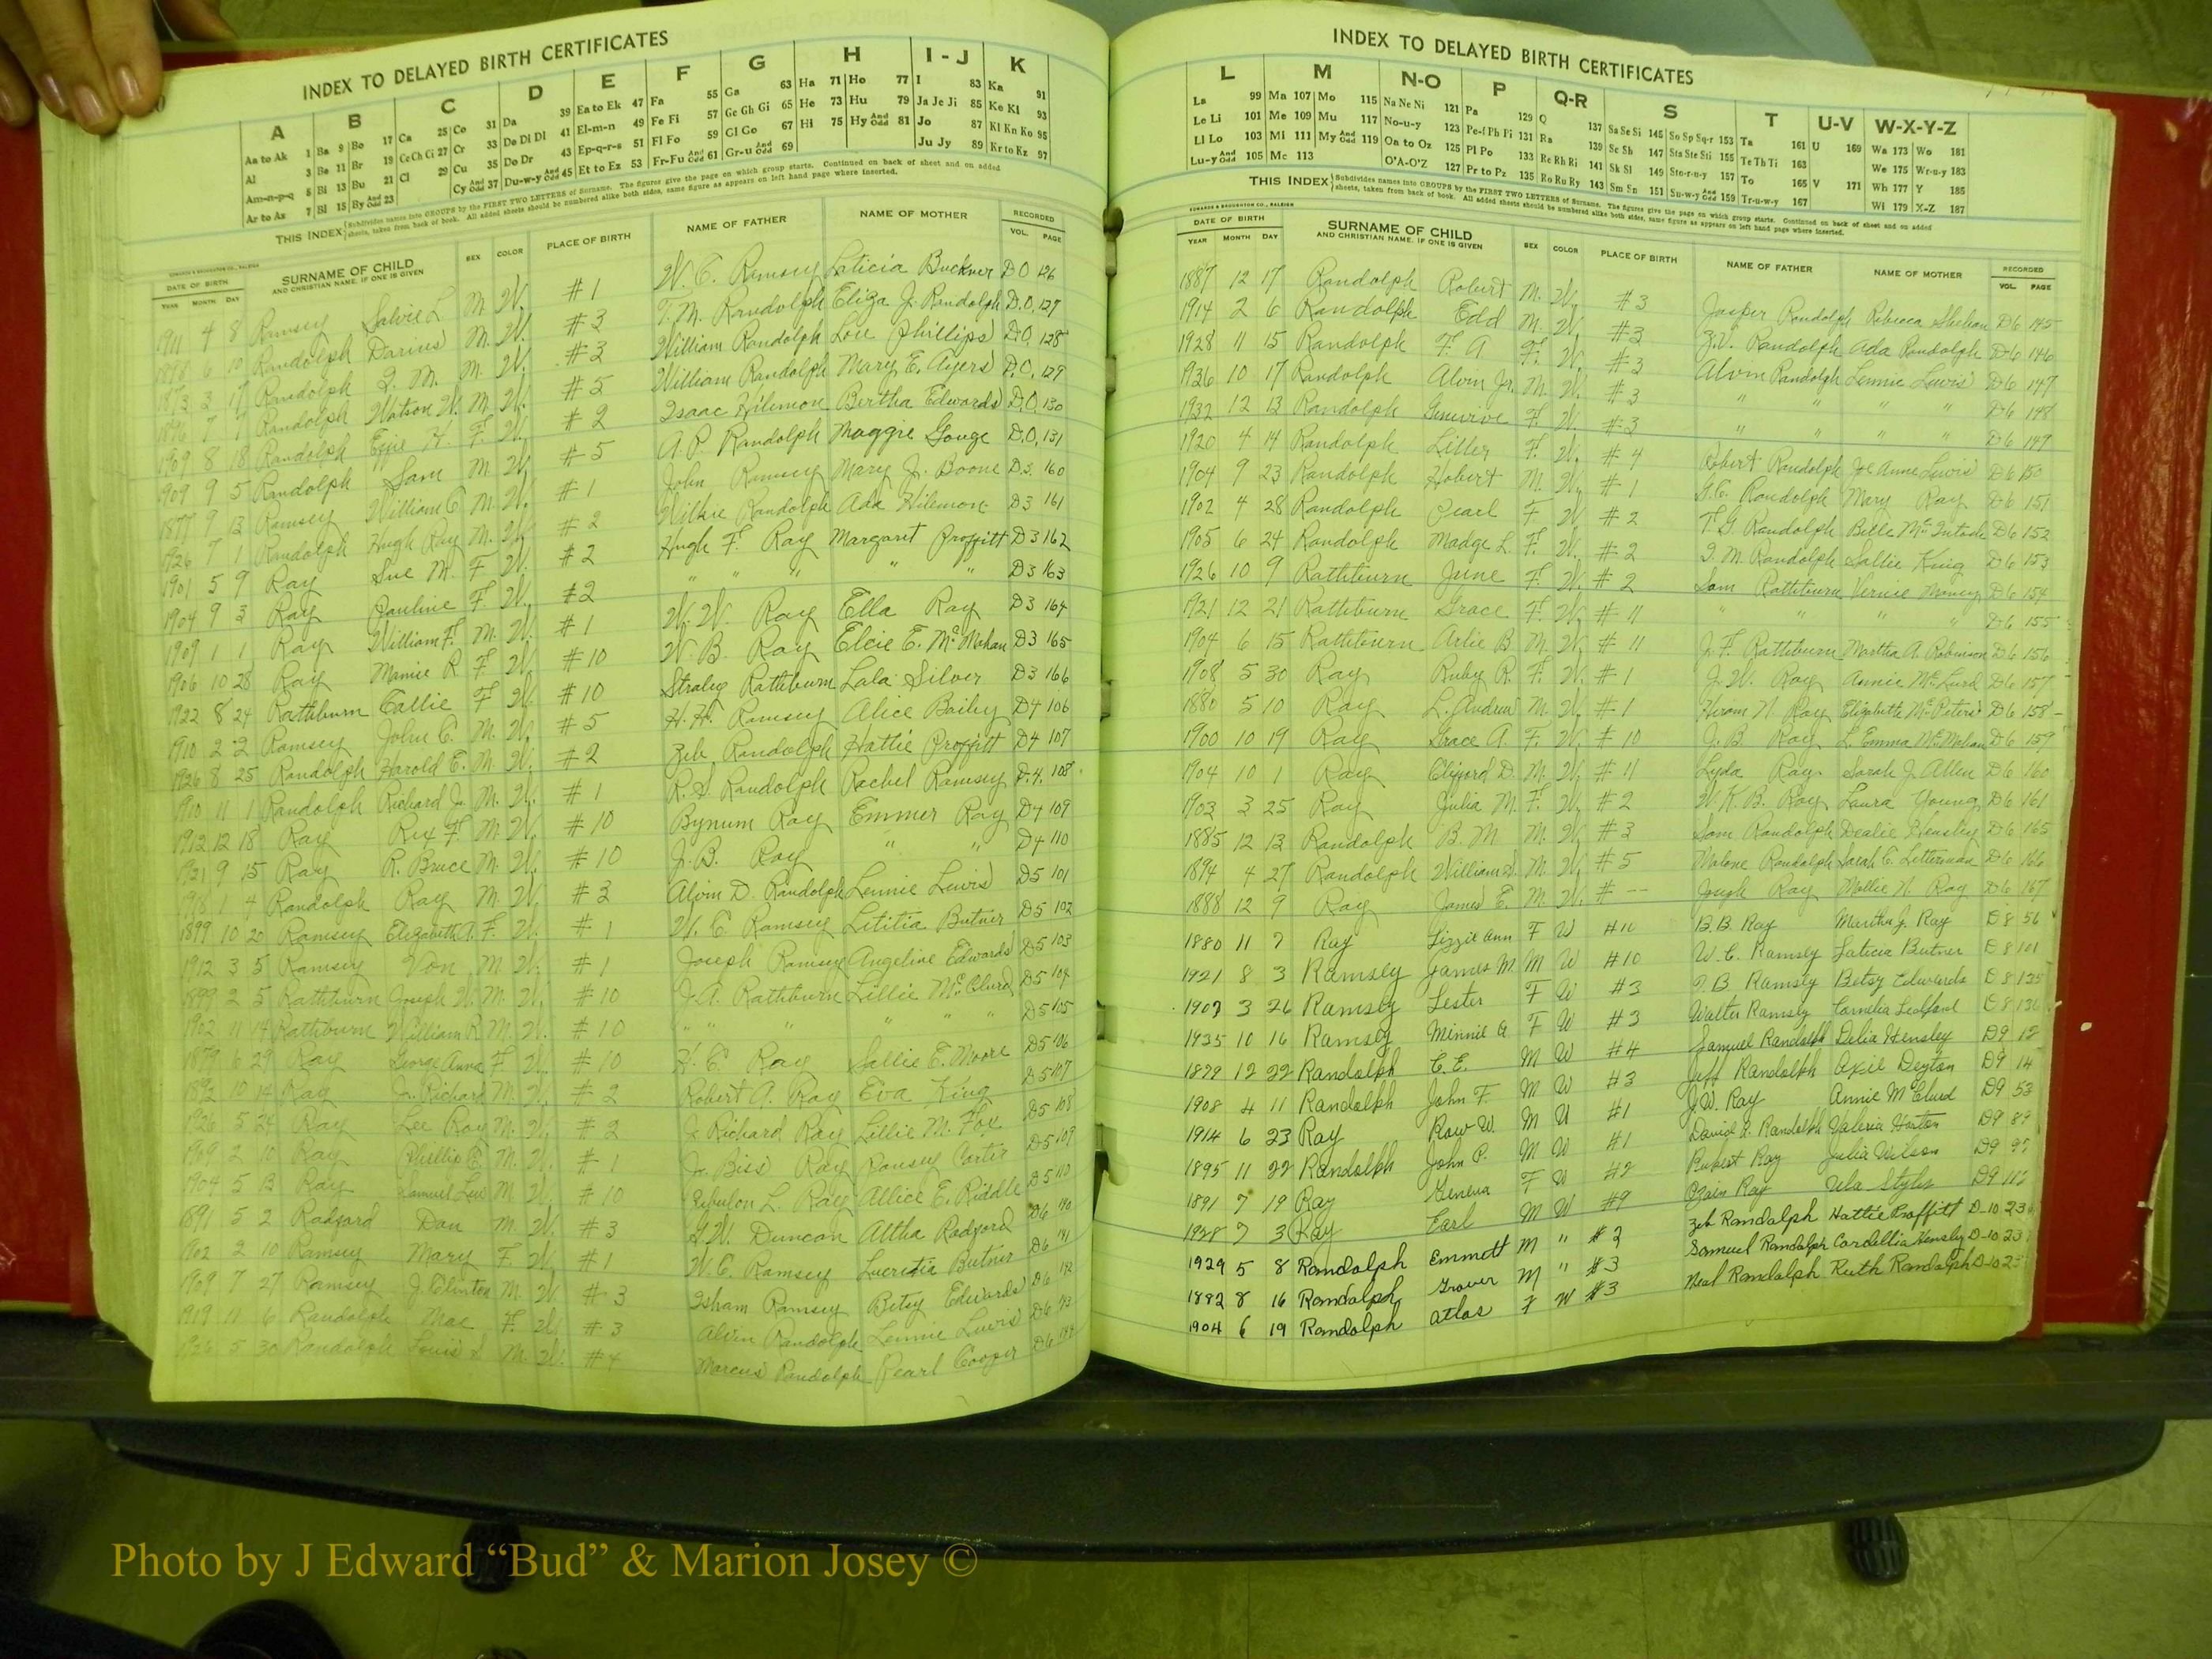 INDEX TO DELAYED BIRTH CERTIFICATES
A B C D E F G H I - J K
Aa to Ak 1 Ba 9 Bo 17 Ca 25 Co 31 Da 39 Ea to Ek 47 Fa 55 Ga 63 Ha 71 Ho 77 I 83 Ka 91
Al 3 Be 11 Br 19 Ce Ch Ci 27 Cr 33 De Di Dl 41 El-m-n 49 Fe Fi 57 Ge Gh Gi 65 He 73 Hu 79 Ja Je Ji 85 Ke Kl 93
Am-n-p-q 5 Bi 13 Bu 21 Cl 29 Cu 35 Do Dr 43 Ep-q-r-s 51 Fl Fo 59 Gl Go 67 Hi 75 Hy And Odd 81 Jo 87 Kl Kn Ko 95
Ar to Az 7 Bl 15 By And Odd 23 Cy And Odd 37 Du-w-y And Odd 45 Et to Ez 53 Fr-Fu And Odd 61 Gr-u And Odd 69 Ju Jy 89 Kr to Kz 97
THIS INDEX Subdivides names into GROUPS by the FIRST TWO LETTERS of Surname. The figures give the page on which group starts. Continued on back of sheet and on added
sheets, taken from back of book. All added sheets should be numbered alike both sides, same figure as appears on left hand page where inserted.
EDWARDS & BROUGHTON CO., RALEIGH
DATE OF BIRTH SURNAME OF CHILD SEX COLOR PLACE OF BIRTH NAME OF FATHER NAME OF MOTHER RECORDED
YEAR MONTH DAY AND CHRISTIAN NAME, IF ONE IS GIVEN VOL. PAGE
1911 4 8 Ramsey L M. W. #1 W. C. Ramsey Laticia Buckner D.O 126
6 10 Randolph Darius M. W. #3 T. M. Randolph Eliza J. Randolph D.O. 127
1873 3 17 Randolph M. M. W. #3 William Randolph Lou Phillips D.O. 128
1896 7 7 Randolph Watson W. M. W. #5 William Randolph Mary E. Ayers D.O. 129
1909 8 18 Randolph Effie H. F. W. #2 Isaac Hilemon Bertha Edwards D.O. 130
1909 9 5 Randolph Sam M. W. #5 A. P. Randolph Maggie Gouge D.O. 131
1877 9 13 Ramsey William C. M. W. #1 John Ramsey Mary J. Boone D3. 160
1926 7 1 Randolph Hugh Ray M. W. #2 Wilkie Randolph Ada Hilemon D3 161
1901 5 9 Ray Sue M. F W. #2 Hugh F. Ray Margaret Proffitt D3 162
1904 9 3 Ray Pauline F. W. #2 " " " " " D3 163
1909 1 1 Ray William F. M. W. #1 W. W. Ray Ella Ray D3 164
1906 10 28 Ray Mamie R F. W. #10 W. B. Ray Elcie E. McMahan D3 165
1922 8 24 Rathburn Callie F W. #10 Straley Rathburn Lala Silver D3 166
1910 2 2 Ramsey John C. M. W. #5 H. H. Ramsey Alice Baily D4 106
1926 8 25 Randolph Harold E. M. W. #2 Zeb Randolph Hattie Proffitt D4 107
1910 11 1 Randolph Richard Jr. M. W. #1 R. S. Randolph Rachel Ramsey D.4. 108
1912 12 18 Ray Rex F. M. W. #10 Bynum Ray Emmer Ray D4 109
1921 9 15 Ray R. Bruce M. W. #10 J. B. Ray " " D4 110
1918 1 4 Randolph Ray M. W. #3 Alvin D. Randolph Lennie Lewis D5 101
1899 10 20 Ramsey Elizabeth A. F. W. #1 W. C. Ramsey Letitia Butner D5 102
1912 3 5 Ramsey Von M. W. #1 Joseph Ramsey Angeline Edwards D5 103
1899 2 5 Rathburn Joseph W. M. W. #10 J. A. Rathburn Lillie McClurd D5 104
1902 11 14 Rathburn William R M. W. #10 " " " " " D5 105
1879 6 29 Ray George Anna F. W. #10 H. C. Ray Sallie E. Moore D5 106
1892 10 14 Ray Jr. Richard M. W. #2 Robert A. Ray Eva King D5 107
1926 5 24 Ray Lee Roy M. W. #2 J. Richard Ray Lillie M. Fox D5 108
1909 2 10 Ray Phillip E. M. W. #1 Jr. Biss Ray Ransey Carter D5 109
1904 5 13 Ray Samuel Lee M. W. #10 Zebulon L. Ray Allice E. Riddle D5 110
1891 5 2 Radford Dan M. W. #3 G. W. Duncan Altha Radford D6 140
1902 2 10 Ramsey Mary F. W. #1 W. C. Ramsey Lucretia Butner D6 141
1909 7 27 Ramsey J. Clinton M. W #3 Isham Ramsey Betsy Edwards D6 142
1919 11 6 Randolph Mae F. W. #3 Alvin Randolph Lennie Lewis D6 143
1926 5 30 Randolph Louis S M. W. #4 Marcus Randolph Pearl Cooper D6 144
INDEX TO DELAYED BIRTH CERTIFICATES
L M N-O P Q-R S T U-V W-X-Y-Z
La 99 Ma 107 Mo 115 Na Ne Ni 121 Pa 129 Q 137 Sa Se Si 145 So Sp Sq-r 153 Ta 161 U 169 Wa 173 Wo 181
Le Li 101 Me 109 Mu 117 No-u-y 123 Pe-f Ph Pi 131 Ra 139 Sc Sh 147 Sta Ste Sti 155 Te Th Ti 163 We 175 Wr-u-y 183
Ll Lo 103 Mi 111 My And Odd 119 Oa to Oz 125 Pl Po 133 Re Rh Ri 141 Sk Sl 149 Sto-r-u-y 157 To 165 V 171 Wh 177 Y 185
Lu-y And Odd 105 Mc 113 O'A-O'Z 127 Pr to Pz 135 Ro Ru Ry 143 Sm Sn 151 Su-w-y And Odd 159 Tr-u-w-y 167 Wi 179 X-Z 187
THIS INDEX Subdivides names into GROUPS by the FIRST TWO LETTERS of Surname. The figures give the page on which group starts. Continued on back of sheet and on added
sheets, taken from back of book. All added sheets should be numbered alike both sides, same figure as appears on left hand page where inserted.
EDWARDS & BROUGHTON CO., RALEIGH
DATE OF BIRTH SURNAME OF CHILD SEX COLOR PLACE OF BIRTH NAME OF FATHER NAME OF MOTHER RECORDED
YEAR MONTH DAY AND CHRISTIAN NAME, IF ONE IS GIVEN VOL. PAGE
1887 12 17 Randolph Robert M. W. #3 Jasper Randolph Rebecca Shehan D6 145
1914 2 6 Randolph Edd M. W. #3 Z. V. Randolph Ada Randolph D6 146
1928 11 15 Randolph F. A F. W. #3 Alvin Randolph Lennie Lewis D6 147
1936 10 17 Randolph Alvin Jr. M. W. #3 " " " " D6 148
1932 12 13 Randolph Genevive F. W. #3 " " " " D6 149
1920 4 14 Randolph Liller F. W. #4 Robert Randolph Joe Anne Lewis D6 150
1904 9 23 Randolph Hobert M. W. #1 G. C. Randolph Mary Ray D6 151
1902 4 28 Randolph Pearl F W. #2 T. G. Randolph Belle McIntosh D6 152
1905 6 24 Randolph Madge L. F. W. #2 I. M. Randolph Sallie King D6 153
1926 10 9 Rathburn June F. W. #2 Sam Rathburn Vernie D6 154
1921 12 21 Rathburn Grace F. W. #11 " " " " D6 155
1904 6 15 Rathburn Arlie B M. W. #11 J. F. Rathburn Martha A. Robinson D6 156
1908 5 30 Ray Ruby R. F. W. #1 J. W. Ray Annie McLurd D6 157
1880 5 10 Ray L. Andrew M. W. #1 Hiram N. Ray Elizabeth McPeters D6 158
1900 10 19 Ray Grace A. F. W. #10 J. B. Ray L. Emma McMahan D6 159
1904 10 1 Ray Clifford D. M. W. #11 Lyda Ray Sarah J. Allen D6 160
1903 3 25 Ray Julia M. F. W. #2 W. K. B. Ray Laura Young D6 161
1885 12 13 Randolph B. M M. W. #3 Sam Randolph Dealie Hensley D6 165
1894 4 27 Randolph William D. M. W. #5 Malone Randolph Sarah C. Letterman D6 166
1888 12 9 Ray James E. M. W. # -- Joseph Ray Mollie N. Ray D6 167
1880 11 7 Ray Lizzie Ann F W #11 B. B. Ray Martha J. Ray D8 56
1921 8 3 Ramsey James M. M W #10 W. C. Ramsey Laticia Butner D8 101
1907 3 26 Ramsey Lester F W #3 I. B Ramsey Betsy Edwards D8 135
1935 10 16 Ramsey Minnie A F W #3 Walter Ramsey Cornelia Ledford D8 136
1879 12 22 Randolph C. E. M W #4 Samuel Randolph Delia Hensley D9 12
1908 4 11 Randolph John F. M W #3 Jeff Randolph Axie Deyton D9 14
1914 6 23 Ray Row W. M W #1 J. W. Ray Annie McClurd D9 53
1895 11 22 Randolph John P. M W #1 David A. Randolph Valeria Horton D9 89
1891 7 19 Ray Geneva F W #2 Robert Ray Julia Wilson D9 97
1928 7 3 Ray Earl M W #9 Ozain Ray Ula Styles D9 112
1929 5 8 Randolph Emmett M " #2 Zeb Randolph Hattie Proffitt D-10 23
1882 8 16 Randolph Grover M " #3 Samuel Randolph Cordellia Hensley D-10 23
1904 6 19 Randolph Atlas F W #3 Neal Randolph Ruth Randolph D-10 23
Photo by J Edward “Bud” & Marion Josey ©